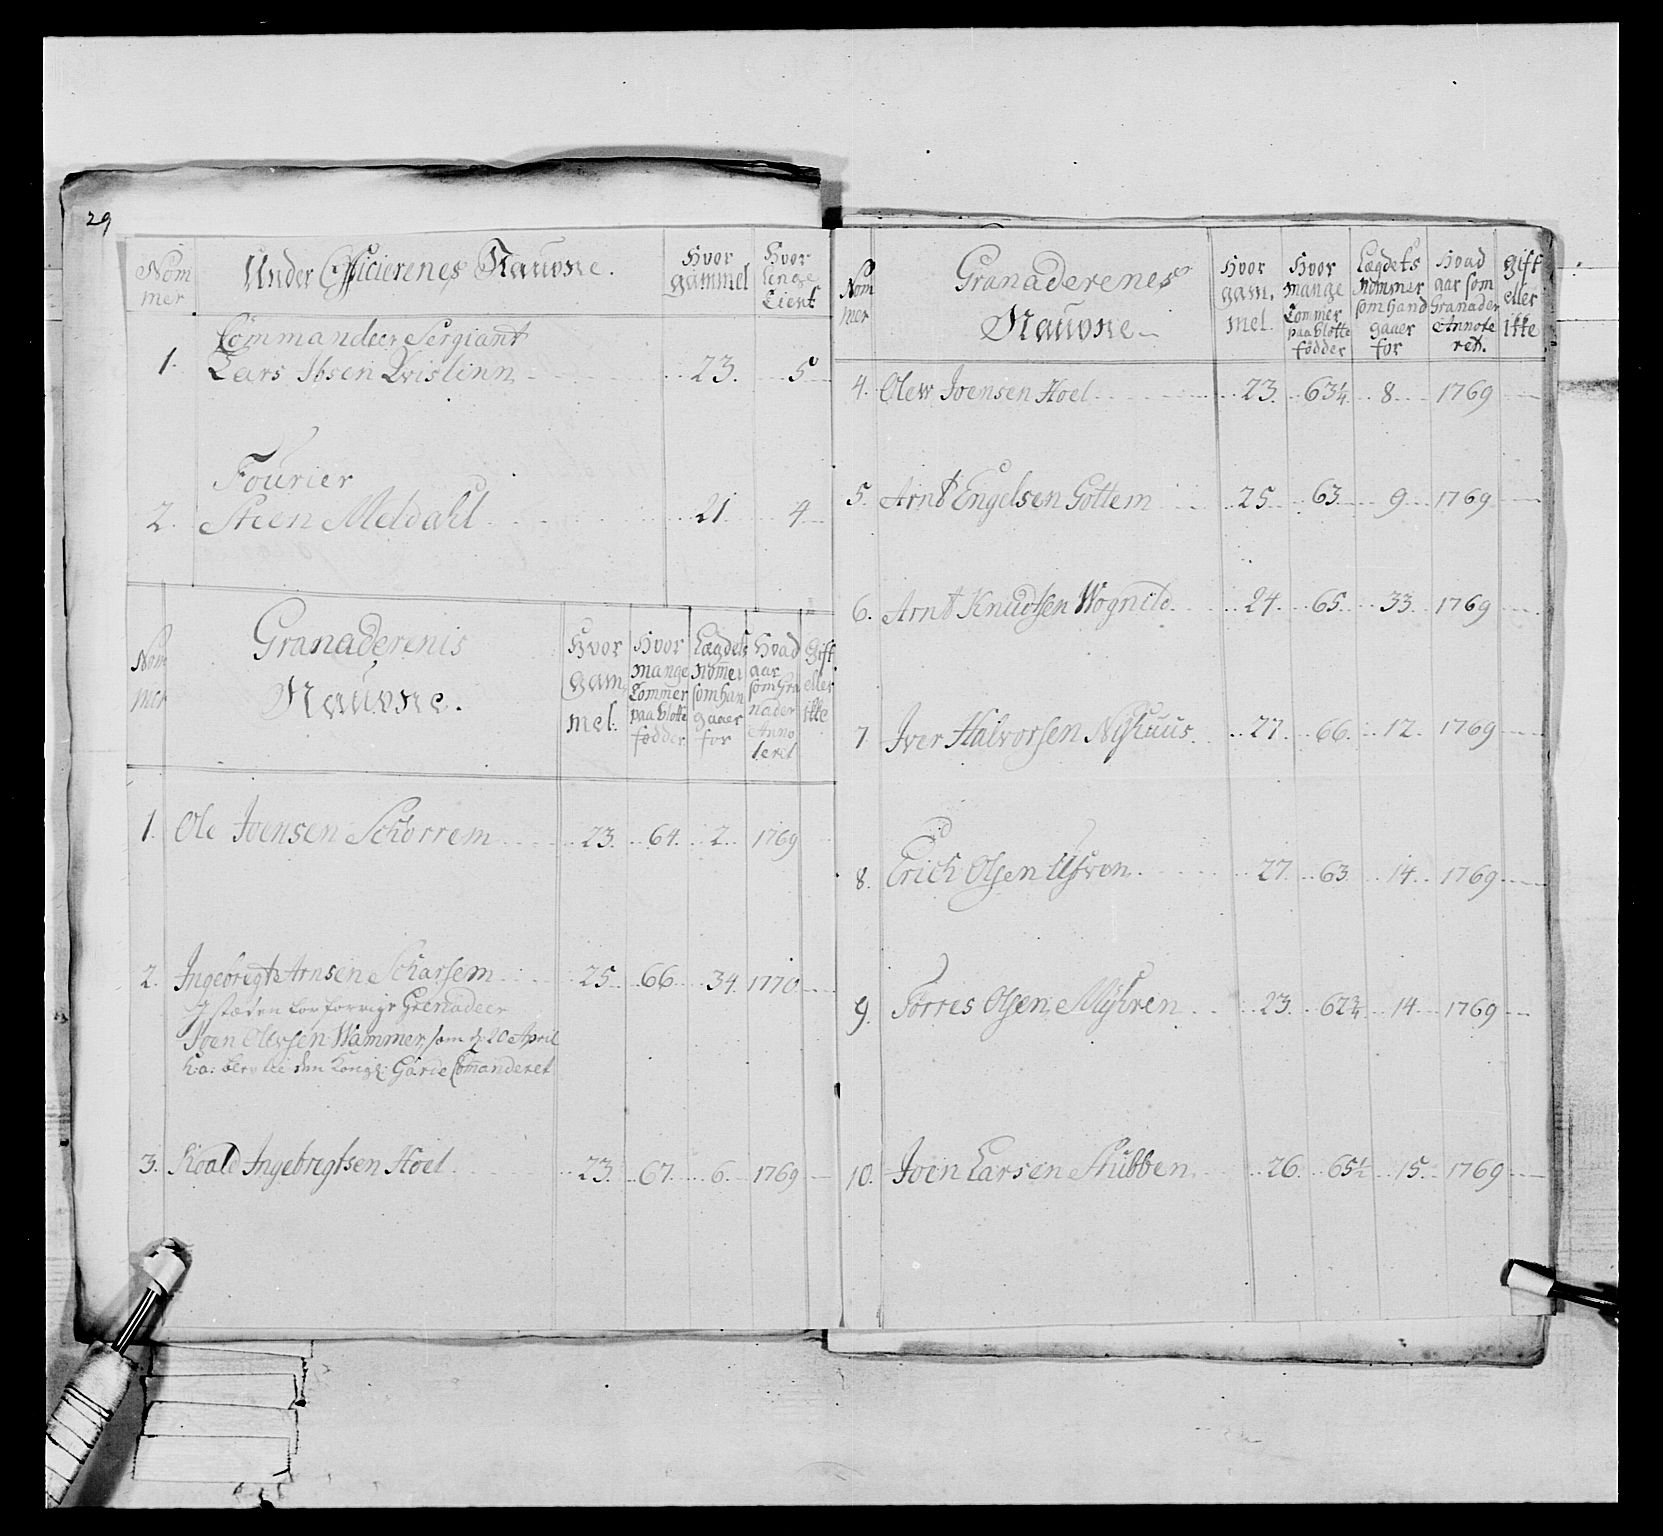 29
Nom
mer
Under Officierenes Nauvne.
Hvor
gammel
Hvor
lenge
Tient
Commandeer Sergiant
1. Lars Ibsen Qvislinn 23. 5
Fourier
2. Steen Meldahl 21 4
Nom
mer
Granaderenis
Nauvne.
Hvor
gam
mel.
Hvor
mange
Tommer
paa blotte
fødder
Lægdets
Nommer
som han
gaaer
for
Hvad
aar
som Gra
nader
Anno
teret
gift
eller
ikke
1. Ole Joensen Schorrem 23. 64. 2. 1769
2. Ingebrigt Arnsen Scharsem 25 66 34 1770
I stæden for forrige Grenadeer
Joen Olevsen Wammer, som d. 20 April
h: a: blev til den Kongl: Garde Comanderet
3. Hoald Ingebrigtsen Hoel 23. 67. 6. 1769
Nom
mer
Granaderenes
Nauvne
Hvor
gam.
mel.
Hvor
mange
Tommer
paa blotte
fødder
Lægdets
Nommer
som hand
gaaer
for
Hvad
aar som
Granader
Annote
ret.
gift
eller
ikke
4. Olew Joensen Hoel 23. 63¼ 8 1769
5. Arnt Engelsen Gottem 25 63 9 1769
6. Arnt Knudtsen Wognild 24. 65. 33. 1769
7 Iver Halvorsen 27. 66. 12. 1769
8. Erich Olsen 27. 63 14. 1769
9. Torres Olsen Myhren 23. 62¾ 14. 1769
10. Joen Larsen Stubben 26. 65½ 15. 1769